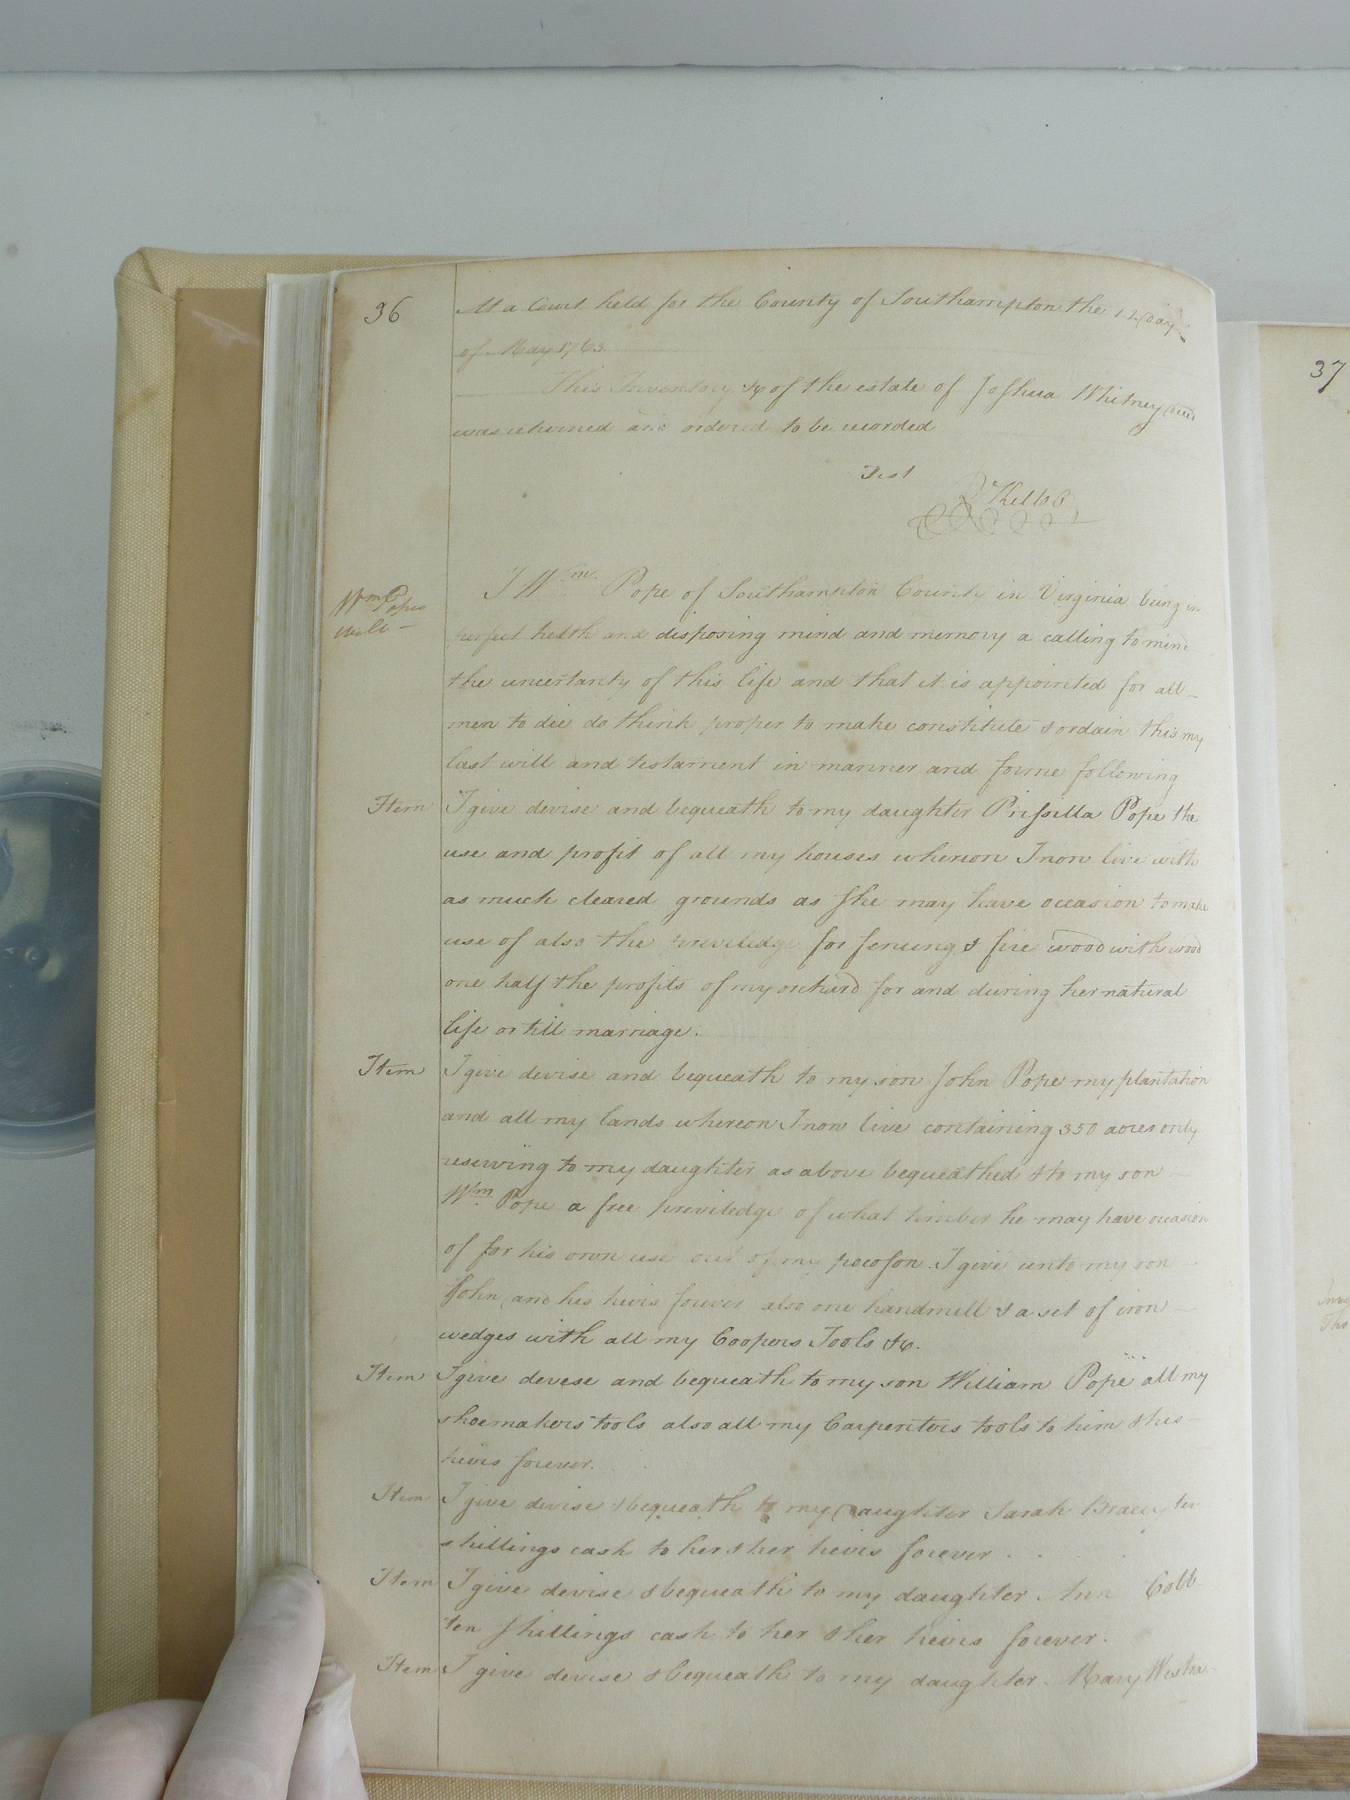 36
At a Court held for the County of Southampton the 12 Day
of May 1763
This Inventory &c of the estate of Joshua Whitney decd
was returned and ordered to be recorded
Test
Wm Popes
will
I Wm. Pope of Southampton County in Virginia being in
perfect helth and disposing mind and memory a calling to mind
the uncertanty of this life and that it is appointed for all
men to die do think proper to make constitute & ordain this my
last will and testament in manner and forme following
Item I give devise and bequeath to my daughter Prissilla Pope the
use and profit of all my houses whereon I now live with
as much cleared grounds as she may have occasion to make
use of also the priviledge for fencing & fire wood with wood
one half the profits of my orchard for and during her natural
life or till marriage.
Item I give devise and bequeath to my son John Pope my plantation
and all my lands whereon I now live containing 350 acres only
reserving to my daughter as above bequeathed & to my son
Wm Pope a free priviledge of what timber he may have occasion
of for his own use out of my pocoson. I give unto my son
John and his heirs forever also one handmill & a set of iron
wedges with all my Coopers Tools &c.
Item I give devese and bequeath to my son William Pope all my
shoemakers tools also all my Carpenters tools to him & his
heirs forever.
Item I give devise & bequeath to my Daughter Sarah Bracey ten
shillings cash to her & her heirs forever
Item I give devise & bequeath to my daughter Ann Cobb
ten shillings cash to her & her heirs forever.
Item I give devise & bequeath to my daughter Mary
37